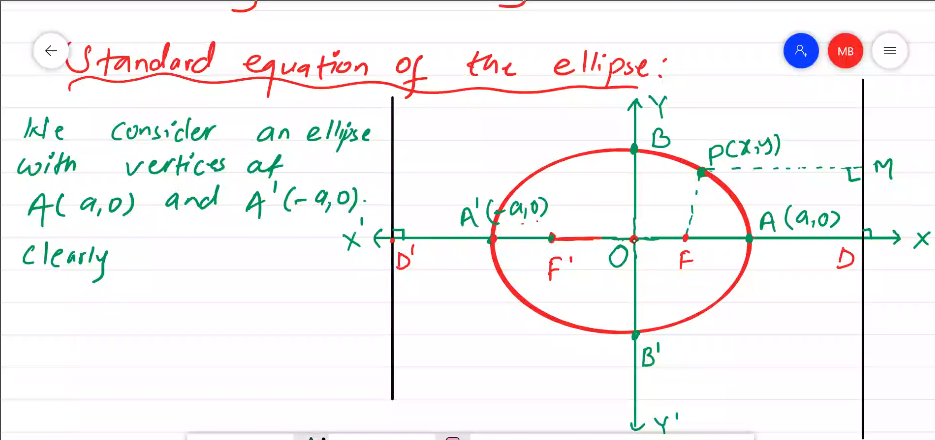 Standard equation of the ellipse:
MB
We consider an ellipse
with vertices at
A(a,0) and A'(-a,0).
Clearly
Y
B
P(x,y)
M
A'(-a,0)
A(a,0)
X'
X
D'
F'
O
F
D
B'
Y'